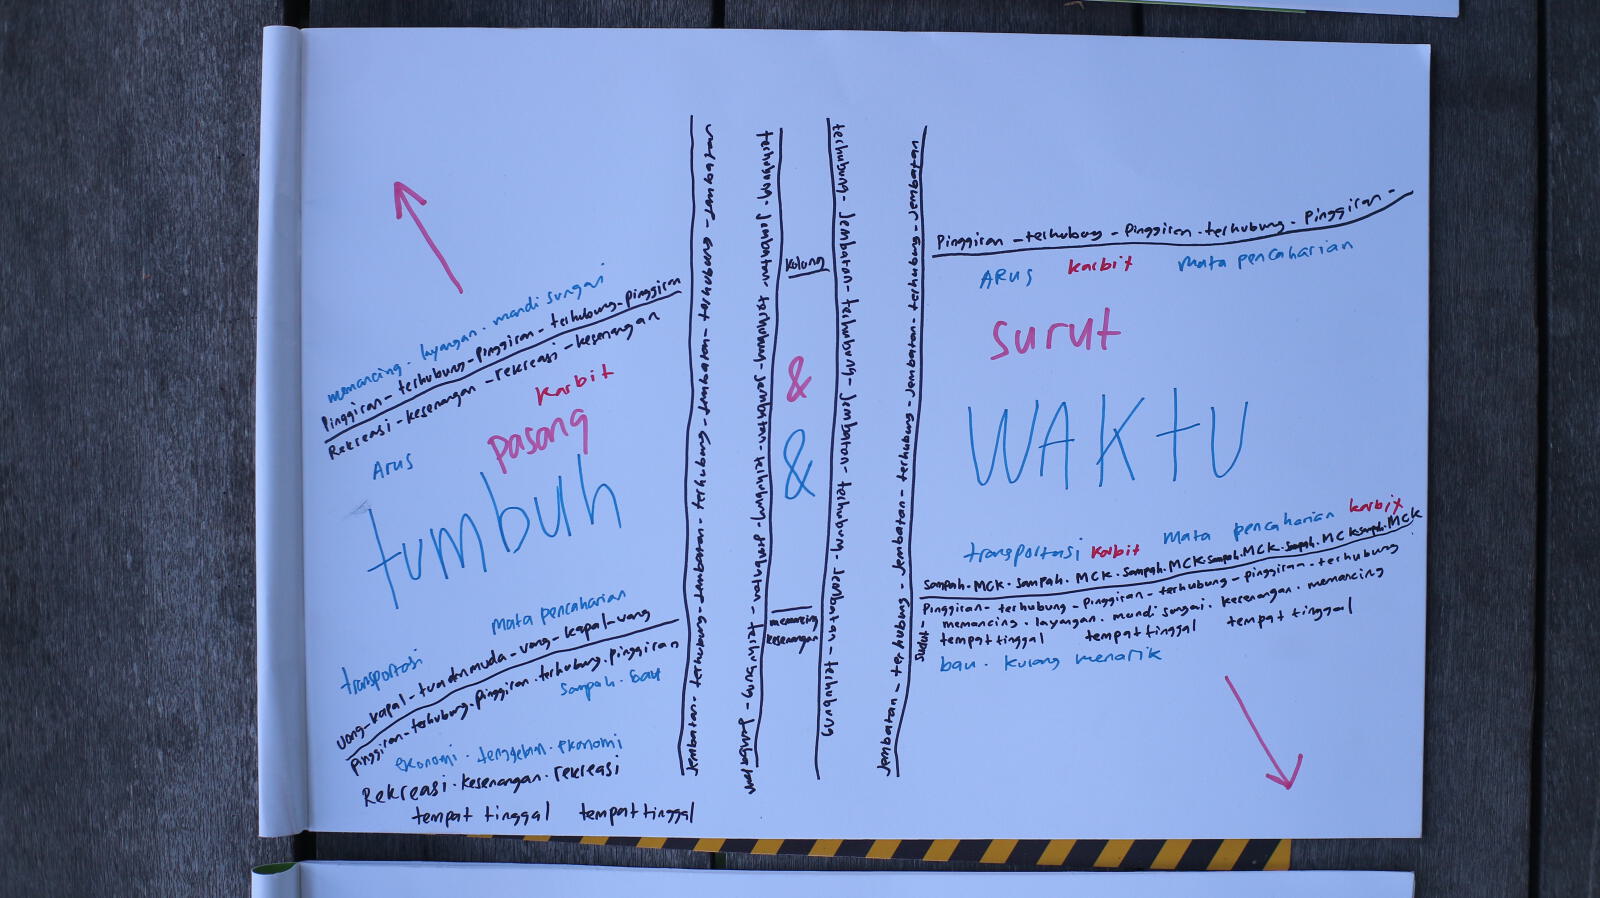 memancing . layangan . mandi sungai
Pinggiran - terhubung - pinggiran - terhubung - pinggiran
Rekreasi - kesenangan - rekreasi - kesenangan
karbit
Arus
pasang
tumbuh
mata pencaharian
transportasi
uang - kapal - tua dan muda - uang - kapal - uang
pinggiran - terhubung . pinggiran . terhubung . pinggiran
sampah . bau
ekonomi . . ekonomi
Rekreasi . kesenangan . rekreasi
tempat tinggal tempat tinggal
Jembatan - terhubung - Jembatan - terhubung - Jembatan - terhubung - Jembatan
terhubung - Jembatan - terhubung - Jembatan - terhubung - Jembatan - terhubung - Jembatan
kolong
&
&
memancing
kesenangan
terhubung - Jembatan - terhubung - Jembatan - terhubung - Jembatan - terhubung
Jembatan - terhubung - Jembatan - terhubung - Jembatan - terhubung - Jembatan
Pinggiran - terhubung - Pinggiran . terhubung . Pinggiran -
ARUS karbit mata pencaharian
surut
WAKtU
transportasi karbit mata pencaharian karbit
sampah . MCK . sampah . MCK . sampah . MCK sampah . MCK . sampah . MCK sampah . MCK
Pinggiran - terhubung - Pinggiran - terhubung - pinggiran - terhubung
sudut - memancing . layangan . mandi sungai . kesenangan . memancing
tempat tinggal tempat tinggal tempat tinggal
bau . kurang menarik